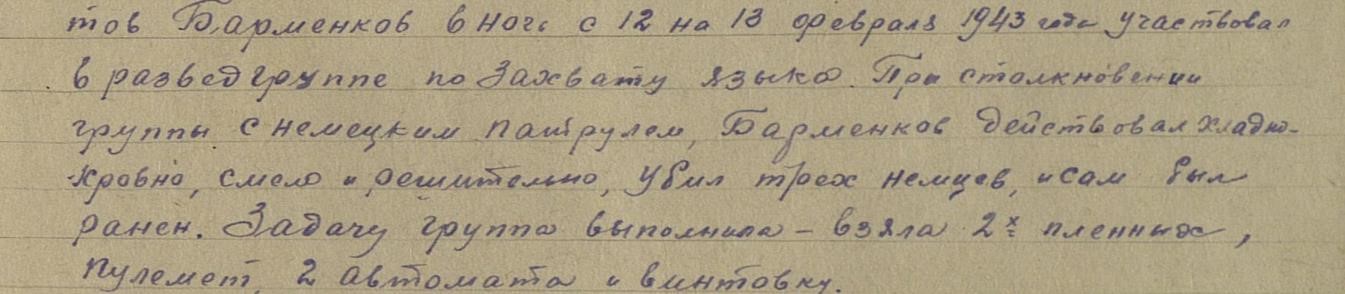 тов Барменков в ночь с 12 на 13 февраля 1943 года участвовал
в разведгруппе по захвату языка. При столкновении
группы с немецким патрулем, Барменков действовал хладно-
кровно, смело и решительно, убил трех немцев, и сам был
ранен. Задачу группа выполнила – взяла 2х пленных,
пулемет, 2 автомата и винтовку.